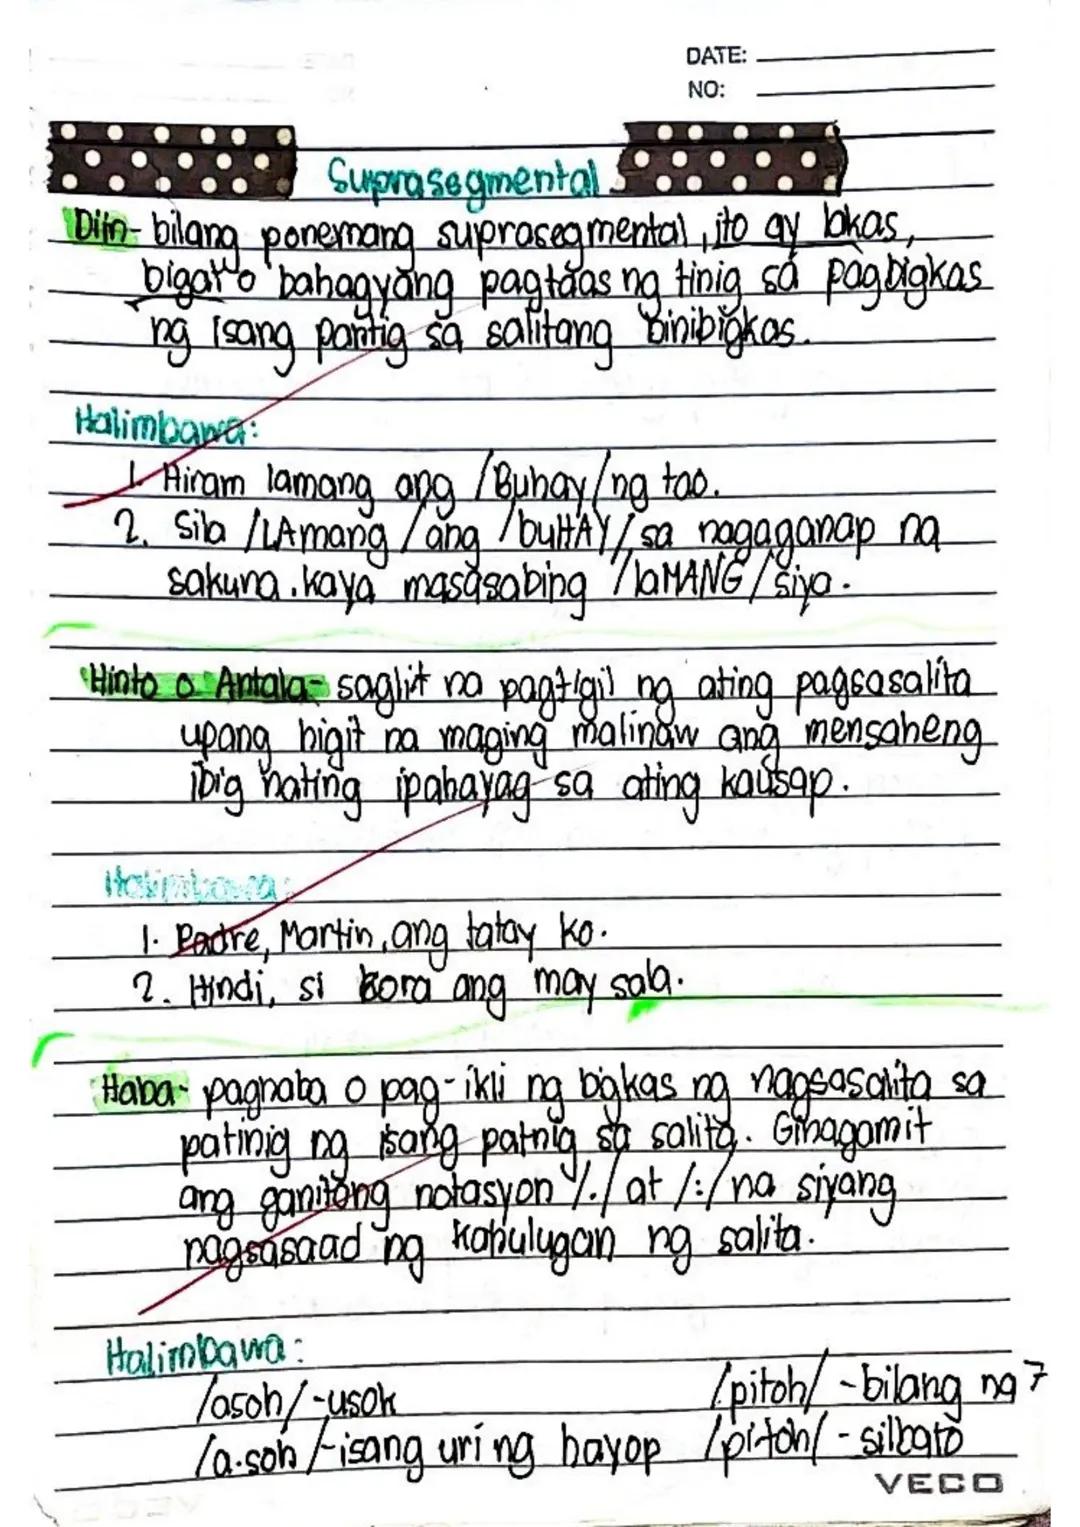 DATE:
NO:
Suprasegmental
Diin- bilang ponemang suprasegmental, ito ay lakas,
bigat o bahagyang pagtaas ng tinig sa pagbigkas
ng isang pantig sa salitang binibigkas.
Halimbawa:
1. Hiram lamang ang /Buhay/ ng tao.
2. Sila /LAmang/ ang /buHAY/, sa nagaganap na
sakuna. kaya masasabing /laMANG/ siya.
Hinto o Antala- saglit na pagtigil ng ating pagsasalita
upang higit na maging malinaw ang mensaheng
ibig nating ipahayag sa ating kausap.
Halimbawa:
1. Padre, Martin, ang tatay ko.
2. Hindi, si Bora ang may sala.
Haba- paghaba o pag-ikli ng bigkas ng nagsasalita sa
patinig ng isang patnig sa salita. Ginagamit
ang ganitong notasyon /./ at /:/ na siyang
nagsasaad ng kahulugan ng salita.
Halimbawa:
/asoh/ -usok /pitoh/ -bilang na 7
/a.soh/-isang uri ng hayop /pi.toh/ - silbato
VECO